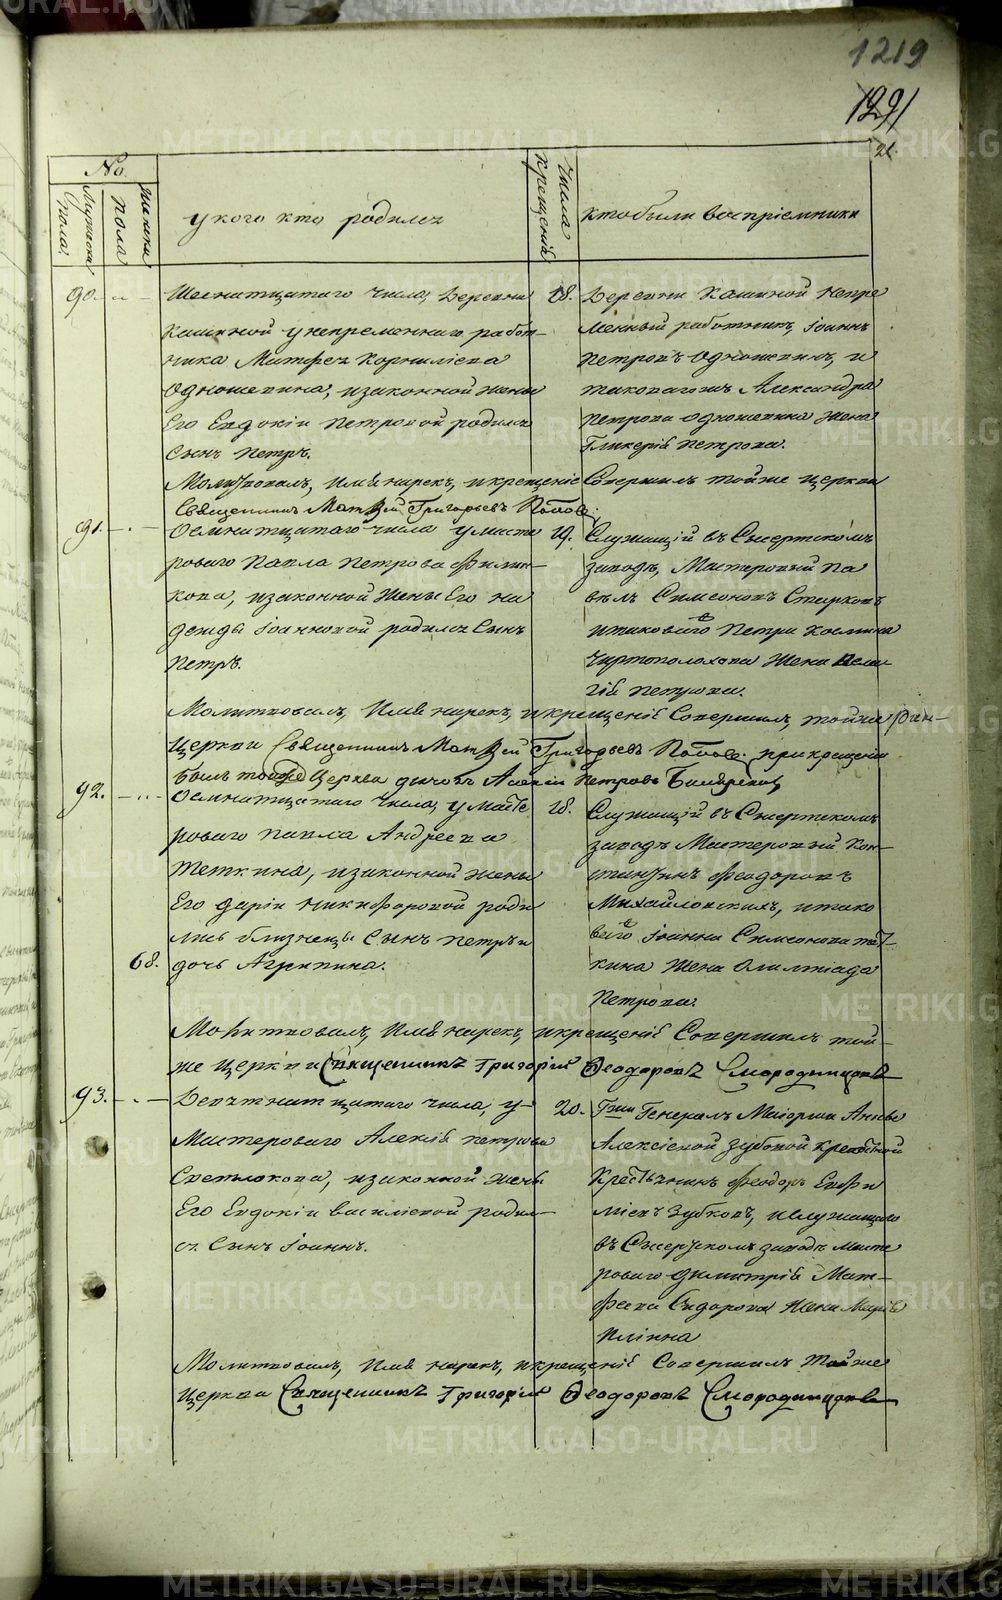 1219
1291
21
No.
Мужеска пола.
Женска пола
у кого кто родился
Числа крещений
кто были воспріемники
90.
Шеснатцатаго числа, Деревни
Кашиной у непременнаго работ-
ника Матфея Корниліева
Одношевина, и законной жены
Его Евдокіи Петровой родился
Сынъ Петръ.
18.
Деревни Кашиной Непре
менный работникъ, Іоаннъ
Петровъ Одношевинъ, и
таковагожъ Александра
Петрова Одношевина жена
Гликерія Петрова.
Молитвовалъ, Имя нарекъ, и крещеніе Совершилъ тойже церкви
Священникъ Матѳей Григорьевъ Поповъ.
91.
Осмнатцатаго числа у масте
роваго Павла Петрова Филин-
кова, и законной жены Его На
дежды Іоанновой родился Сынъ
Петръ.
19.
Служащій въ Сысертскомъ
заводѣ, Мастеровый Па
велъ Симеоновъ Старковъ
и таковаго Петра Космина
Чертополохова жена Пела-
гія Петрова.
Молитвовалъ, Имя нарекъ, и крещеніе Совершилъ, тойже
Церкви Священникъ Матѳей Григорьевъ Поповъ. при крещеніи
былъ тойже Церкви дьячокъ Алексій Петровъ
92.
Осмнатцатаго числа, у масте
роваго Павла Андреева
Теткина, и законной жены
Его Даріи Никифоровой роди
лись близнецы Сынъ Петръ и
68.
дочь Агрипина.
18.
Служащій въ Сысертскомъ
заводѣ Мастеровый Кон-
стантинъ Феодоровъ
Михайловскихъ, и тако
ваго Іоанна Симеонова Тет-
кина жена Олимпіада
Петрова.
Молитвовалъ, Имя нарекъ, и крещеніе Совершилъ той-
же церкви Священникъ Григорій Ѳеодоровъ Смородинцовъ
93.
Девятнатцатаго числа, у
Мастероваго Алексія Петрова
Светлокова, и законной жены
Его Евдокіи Василіевой родил-
ся Сынъ Іоаннъ.
20.
Гжи Генералъ Маіорши Анны
Алексіевой Зубовой крепостной
Крестьянинъ Феодоръ Ефи
міевъ Зубковъ, и служащаго
въ Сысертскомъ заводѣ масте
роваго Димитрія Мат-
феева Сидорова жена Марія
Ильина
Молитвовалъ, Имя нарекъ, и крещеніе Совершилъ Тойже
Церкви Священникъ Григорій Ѳеодоровъ Смородинцовъ
METRIKI.GASO-URAL.RU